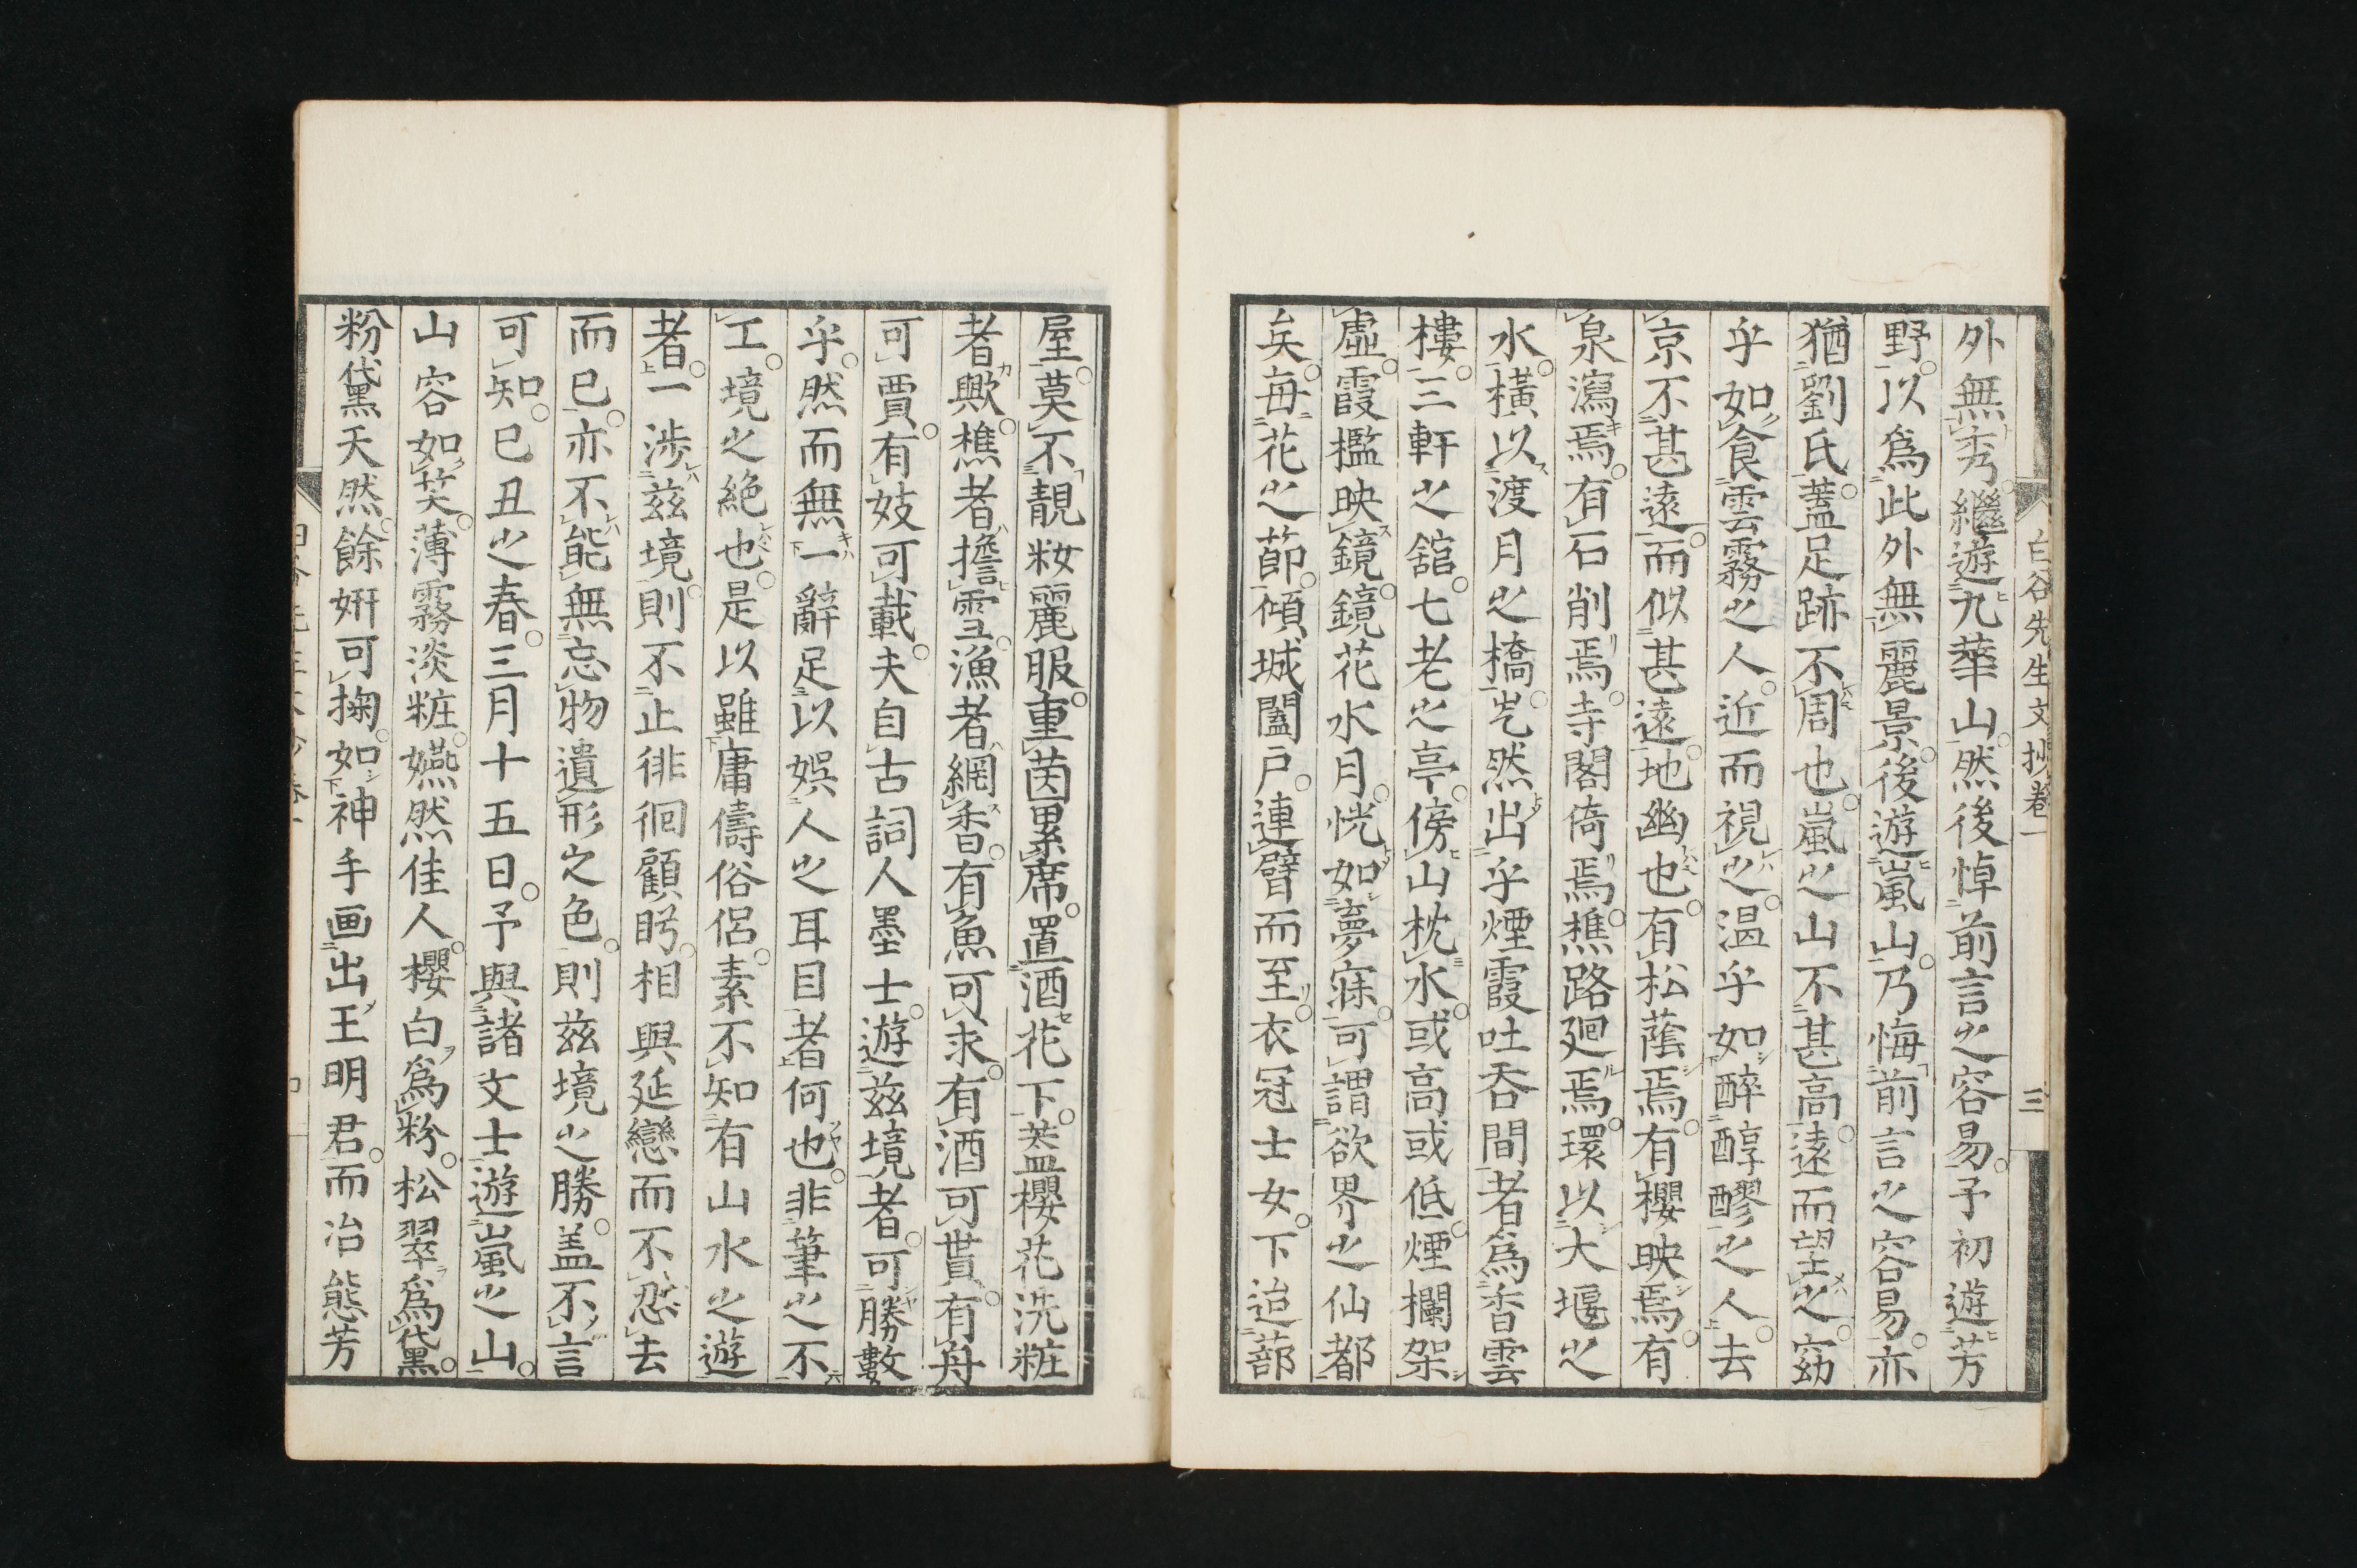 白谷先生文抄卷一
三
外無秀繼遊九華山然後悼前言之容易予初遊芳
野以爲此外無麗景後遊嵐山乃悔前言之容易亦
猶劉氏蓋足跡不周也嵐之山不甚高遠而望之窈
乎如食雲霧之人近而視之温乎如醉醇醪之人去
京不甚遠而似甚遠地幽也有松蔭焉有櫻映焉有
泉瀉焉有石削焉寺閣倚焉樵路廻焉環以大堰之
水横以渡月之橋岂然出乎煙霞吐吞間者爲香雲
樓三軒之舘七老之亭傍山枕水或高或低煙欄架
虛霞檻映鏡鏡花水月恍如夢寐可謂欲界之仙都
矣每花之節傾城闔戸連臂而至衣冠士女下迨蔀
屋莫不靚粧麗服重茵累席置酒花下葢櫻花洗粧
者歟樵者擔雪漁者網香有魚可求有酒可貰有舟
可賈有妓可載夫自古詞人墨士遊兹境者可勝數
乎然而無一辭足以娯人之耳目者何也非筆之不
工境之絶也是以雖庸儔俗侶素不知有山水之遊
者一涉兹境則不止徘徊顧眄相與延戀而不忍去
而已亦不能無忘物遺形之色則兹境之勝盖不言
可知已丑之春三月十五日予與諸文士遊嵐之山
山容如笑薄霧淡粧嬿然佳人櫻白爲粉松翠爲黛
粉黛天然餘妍可掬如神手画出王明君而冶態芳